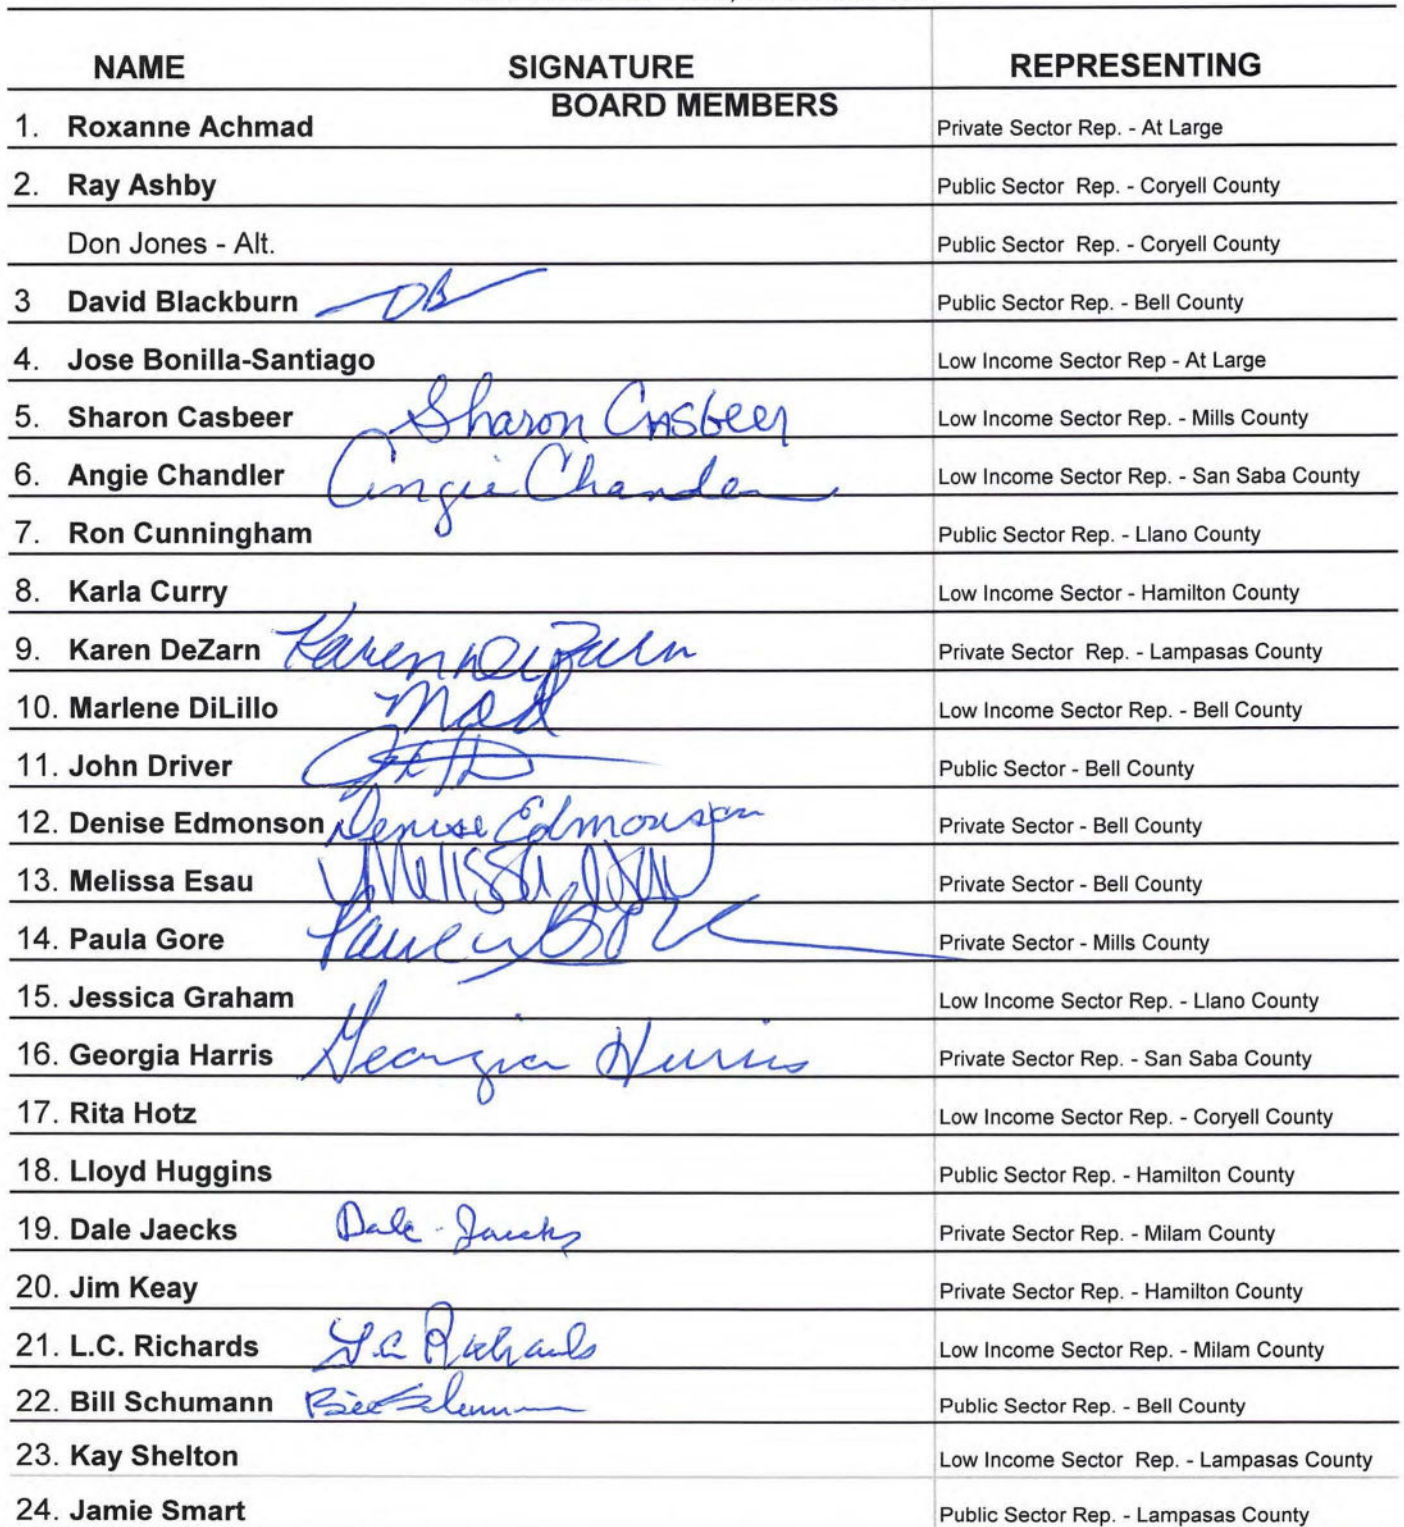 NAME SIGNATURE REPRESENTING
BOARD MEMBERS
1. Roxanne Achmad Private Sector Rep. - At Large
2. Ray Ashby Public Sector Rep. - Coryell County
Don Jones - Alt. Public Sector Rep. - Coryell County
3 David Blackburn DB Public Sector Rep. - Bell County
4. Jose Bonilla-Santiago Low Income Sector Rep - At Large
5. Sharon Casbeer Sharon Casbeer Low Income Sector Rep. - Mills County
6. Angie Chandler Angie Chandler Low Income Sector Rep. - San Saba County
7. Ron Cunningham Public Sector Rep. - Llano County
8. Karla Curry Low Income Sector - Hamilton County
9. Karen DeZarn Karen DeZarn Private Sector Rep. - Lampasas County
10. Marlene DiLillo Low Income Sector Rep. - Bell County
11. John Driver Public Sector - Bell County
12. Denise Edmonson Denise Edmonson Private Sector - Bell County
13. Melissa Esau Melissa Esau Private Sector - Bell County
14. Paula Gore Paula Gore Private Sector - Mills County
15. Jessica Graham Low Income Sector Rep. - Llano County
16. Georgia Harris Georgia Harris Private Sector Rep. - San Saba County
17. Rita Hotz Low Income Sector Rep. - Coryell County
18. Lloyd Huggins Public Sector Rep. - Hamilton County
19. Dale Jaecks Dale Jaecks Private Sector Rep. - Milam County
20. Jim Keay Private Sector Rep. - Hamilton County
21. L.C. Richards L.C. Richards Low Income Sector Rep. - Milam County
22. Bill Schumann Bill Schumann Public Sector Rep. - Bell County
23. Kay Shelton Low Income Sector Rep. - Lampasas County
24. Jamie Smart Public Sector Rep. - Lampasas County